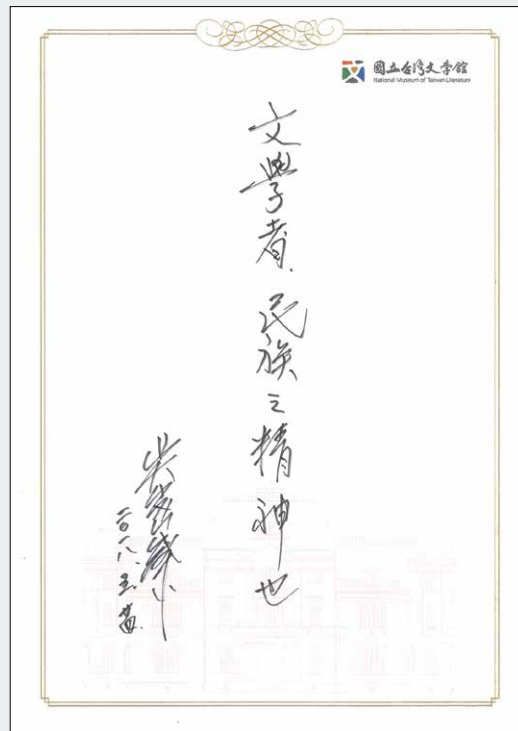 國立台湾文学館
National Museum of Taiwan Literature
文學者、民族之精神也
二〇一八.